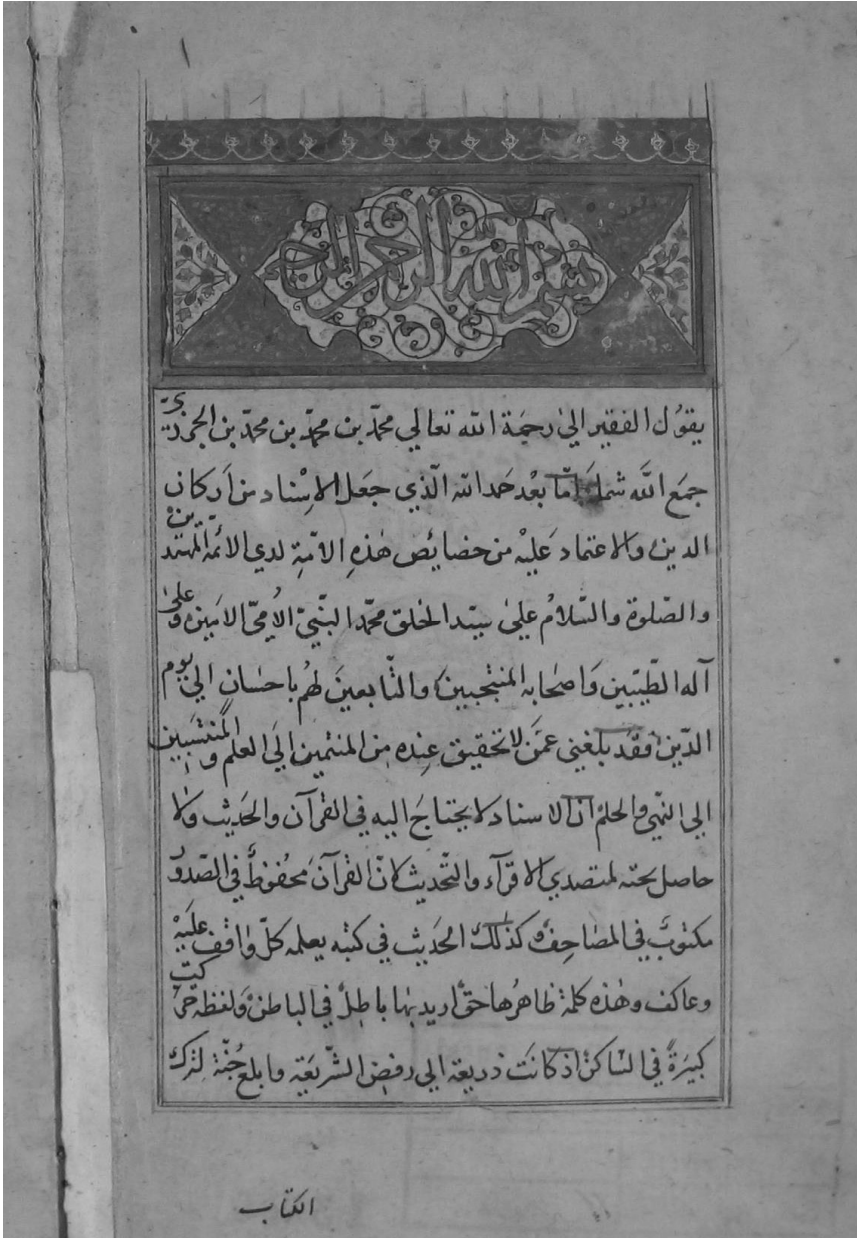 ١
بسم الله الرحمن الرحيم
يقول الفقير الى رحمة الله تعالي محمد بن محمد بن محمد بن الجزري
جمع الله شمله امّا بعد حمد الله الّذي جعل الاسناد من اركان
الدين والاعتماد عليه من خصائص هذه الامّة لدي الائمة المهتدين
والصّلوة والسّلام على سيّد الخلق محمّد النّبيّ الأميّ الامين وعلى
آله الطّيّبين واصحابه المنتجبين والتّابعين لهم باحسان الي يوم
الدّين فقد بلغني عمّن لا تحقيق عنده من المنتمين الى العلم والمنتسبين
الي النهى والحلم ان الاسناد لا يحتاج اليه في القرآن والحديث ولا
حاصل تحته لمتصدي الاقرآء والتّحديث لانّ القرآن محفوظ في الصّدور
مكتوب في المصاحف كذلك الحديث في كتبه يعلمه كلّ واقف عليه
وعاكف وهذه كلمة ظاهرها حق اريد بها باطل في الباطن ولفظة حركت
كبيرة في الساكن اذ كانت ذريعة الي رفض الشّريعة وابلغ جُنّة لترك
الكتاب